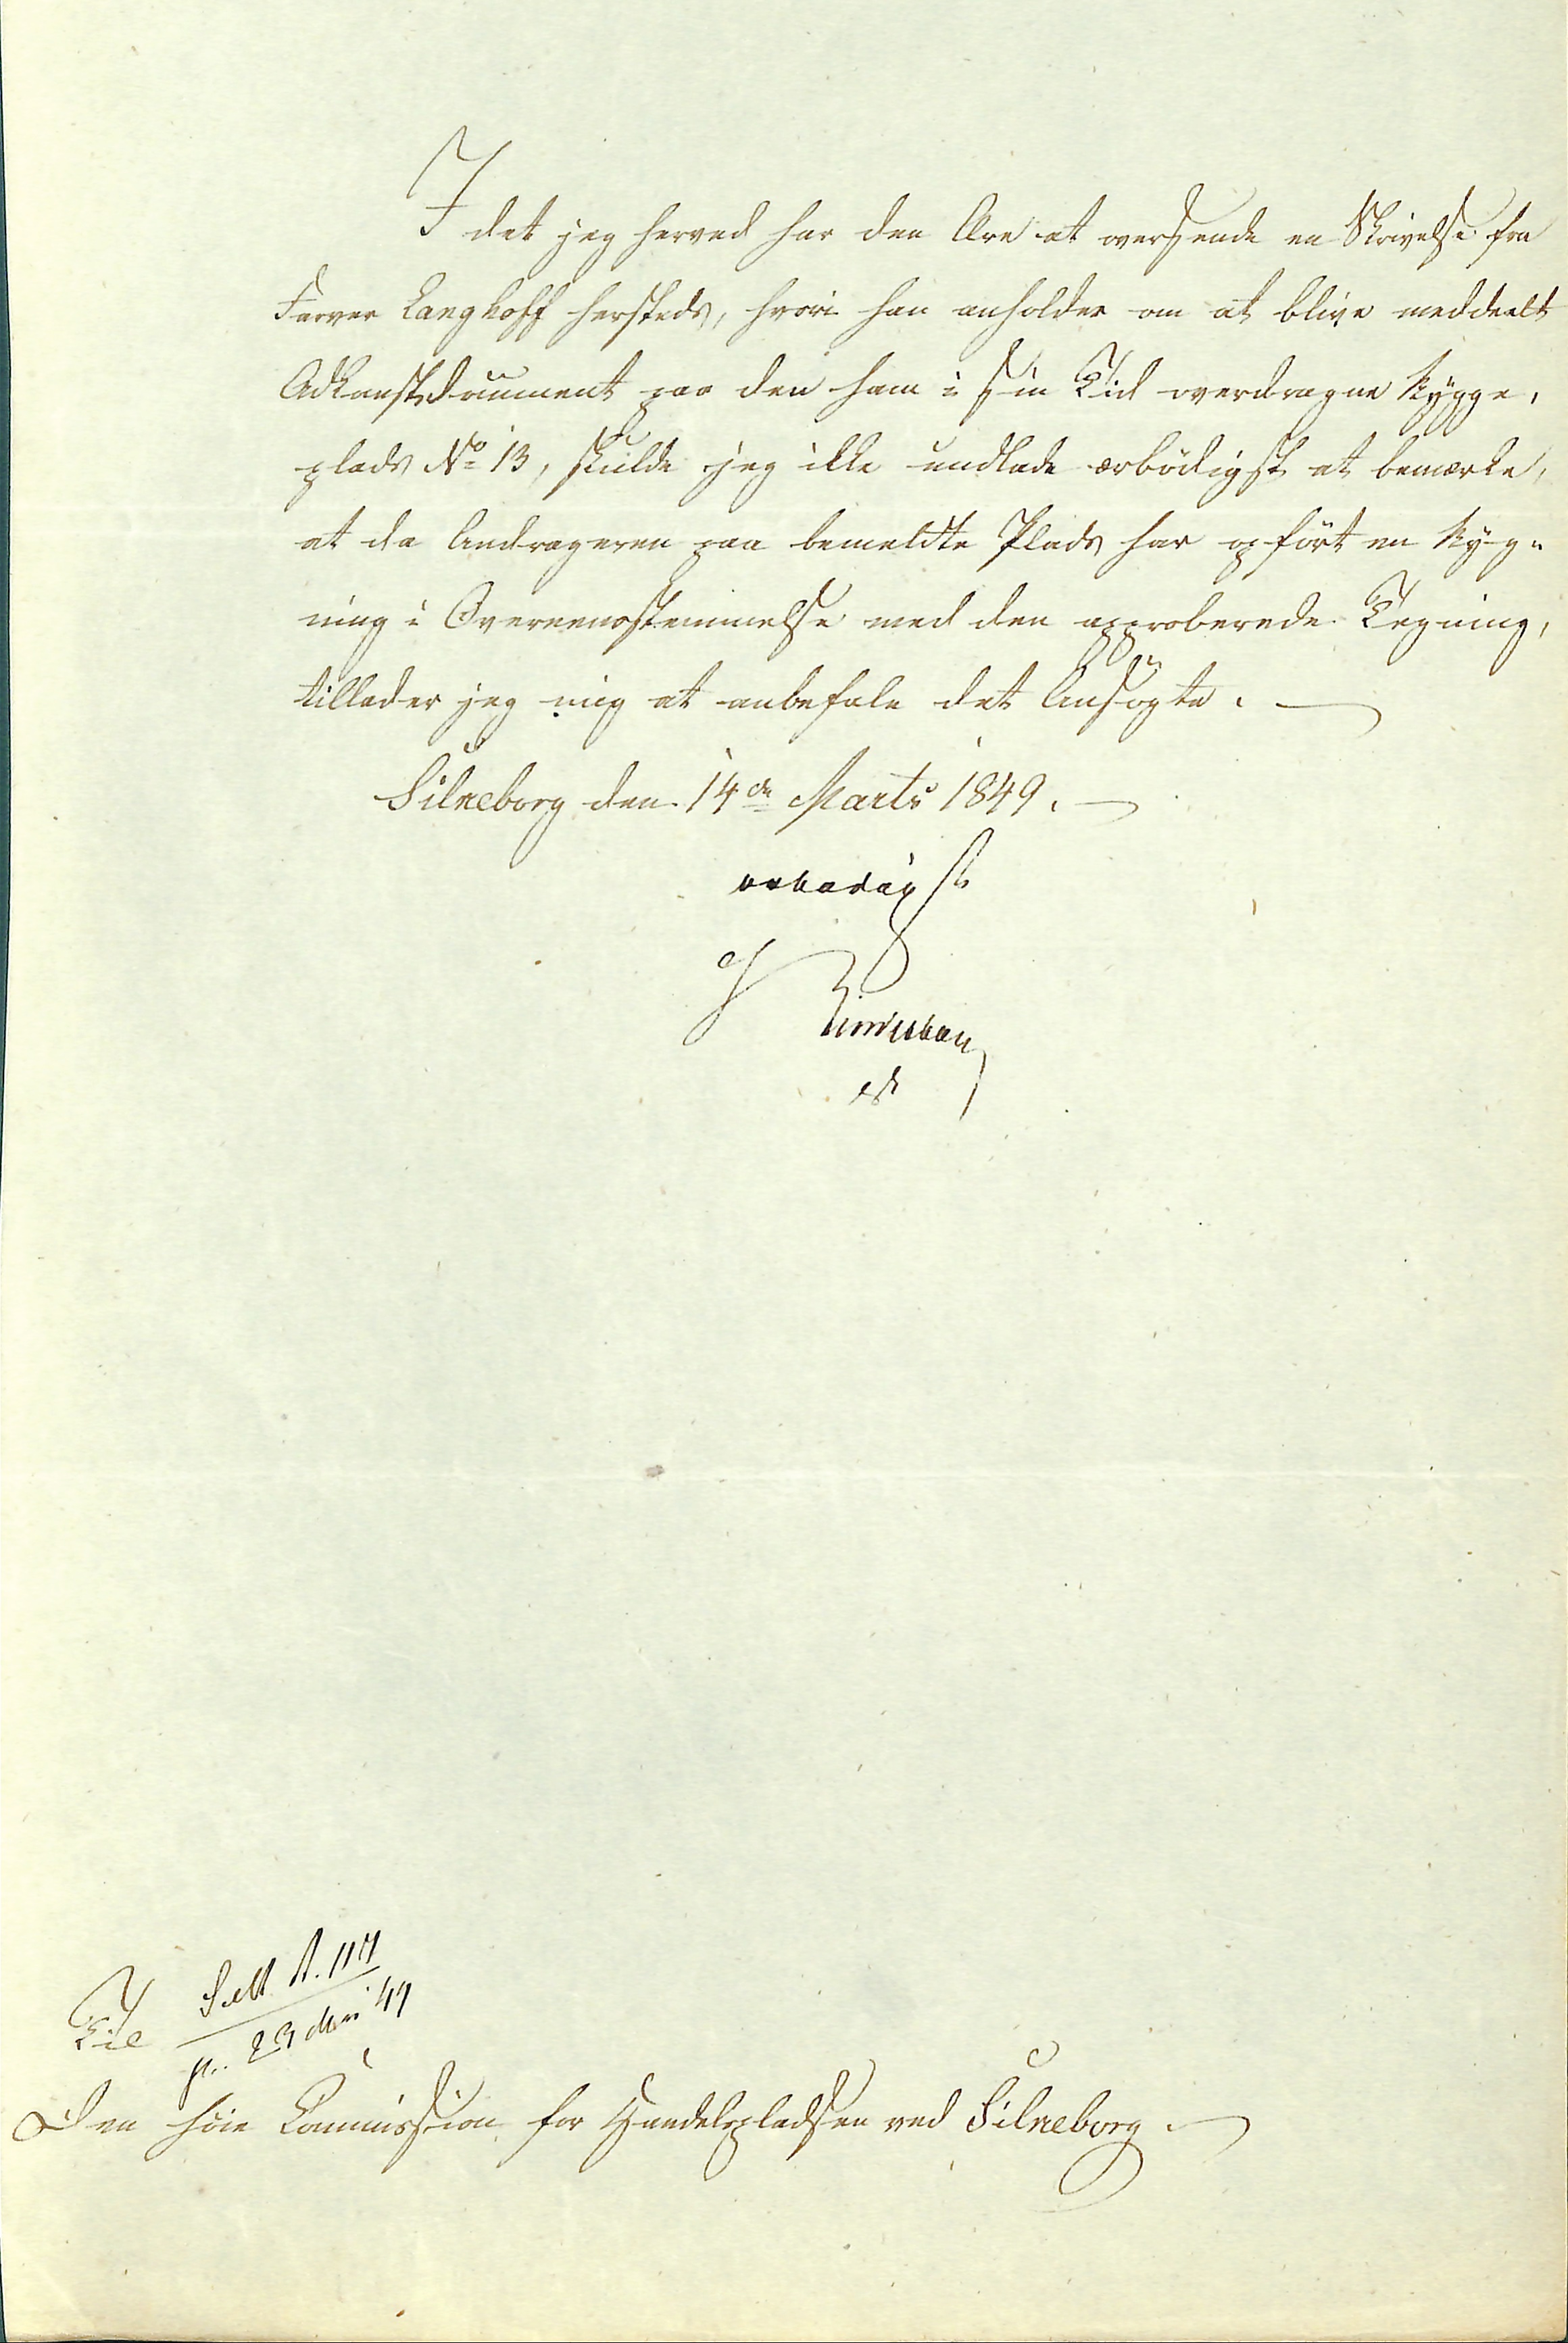 I det jeg herved har den Ære at oversende en Skrivelse fra
Farver Langhoff hersteds, hvori han anholder om at blive meddeelt
Adkomstdocument paa den ham i sin Tid overdragne Bygge-
plads No 13, skulde jeg ikke undlade ærbödigst at bemærke,
at da Andrageren paa bemeldte Plads har opfört en Byg-
ning i Overeensstemmelse med den approberede Tegning,
tillader jeg mig at anbefale det Ansögte. —
Silkeborg den 14de Marts 1849. —
ærbødigst
Til
Den höie Commission for Handelspladsen ved Silkeborg. —